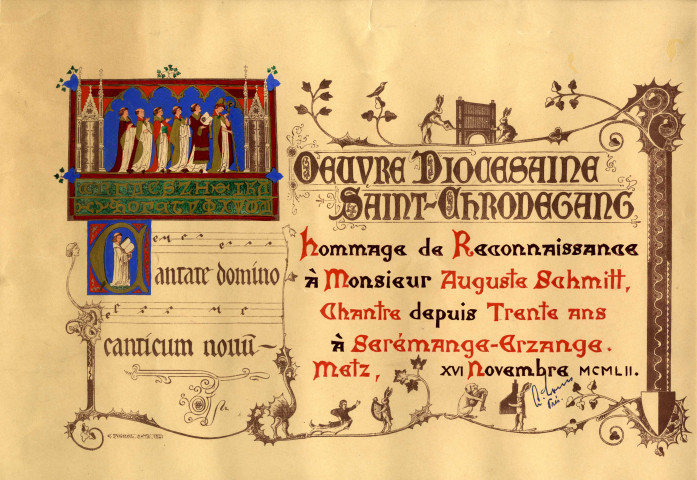 OEUVRE DIOCESAINE
SAINT-CHRODEGANG
Cantate domino
canticum novū
hommage de Reconnaissance
à Monsieur Auguste Schmitt,
Chantre depuis Trente ans
à Serémange-Erzange.
Metz, XVI Novembre MCMLII.